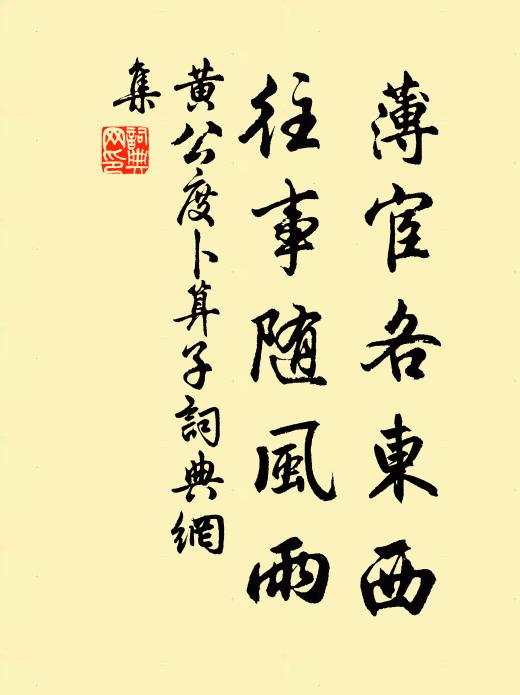 薄宦各東西
往事随風雨
黄公度卜算子詞典網
集
詞典
网印